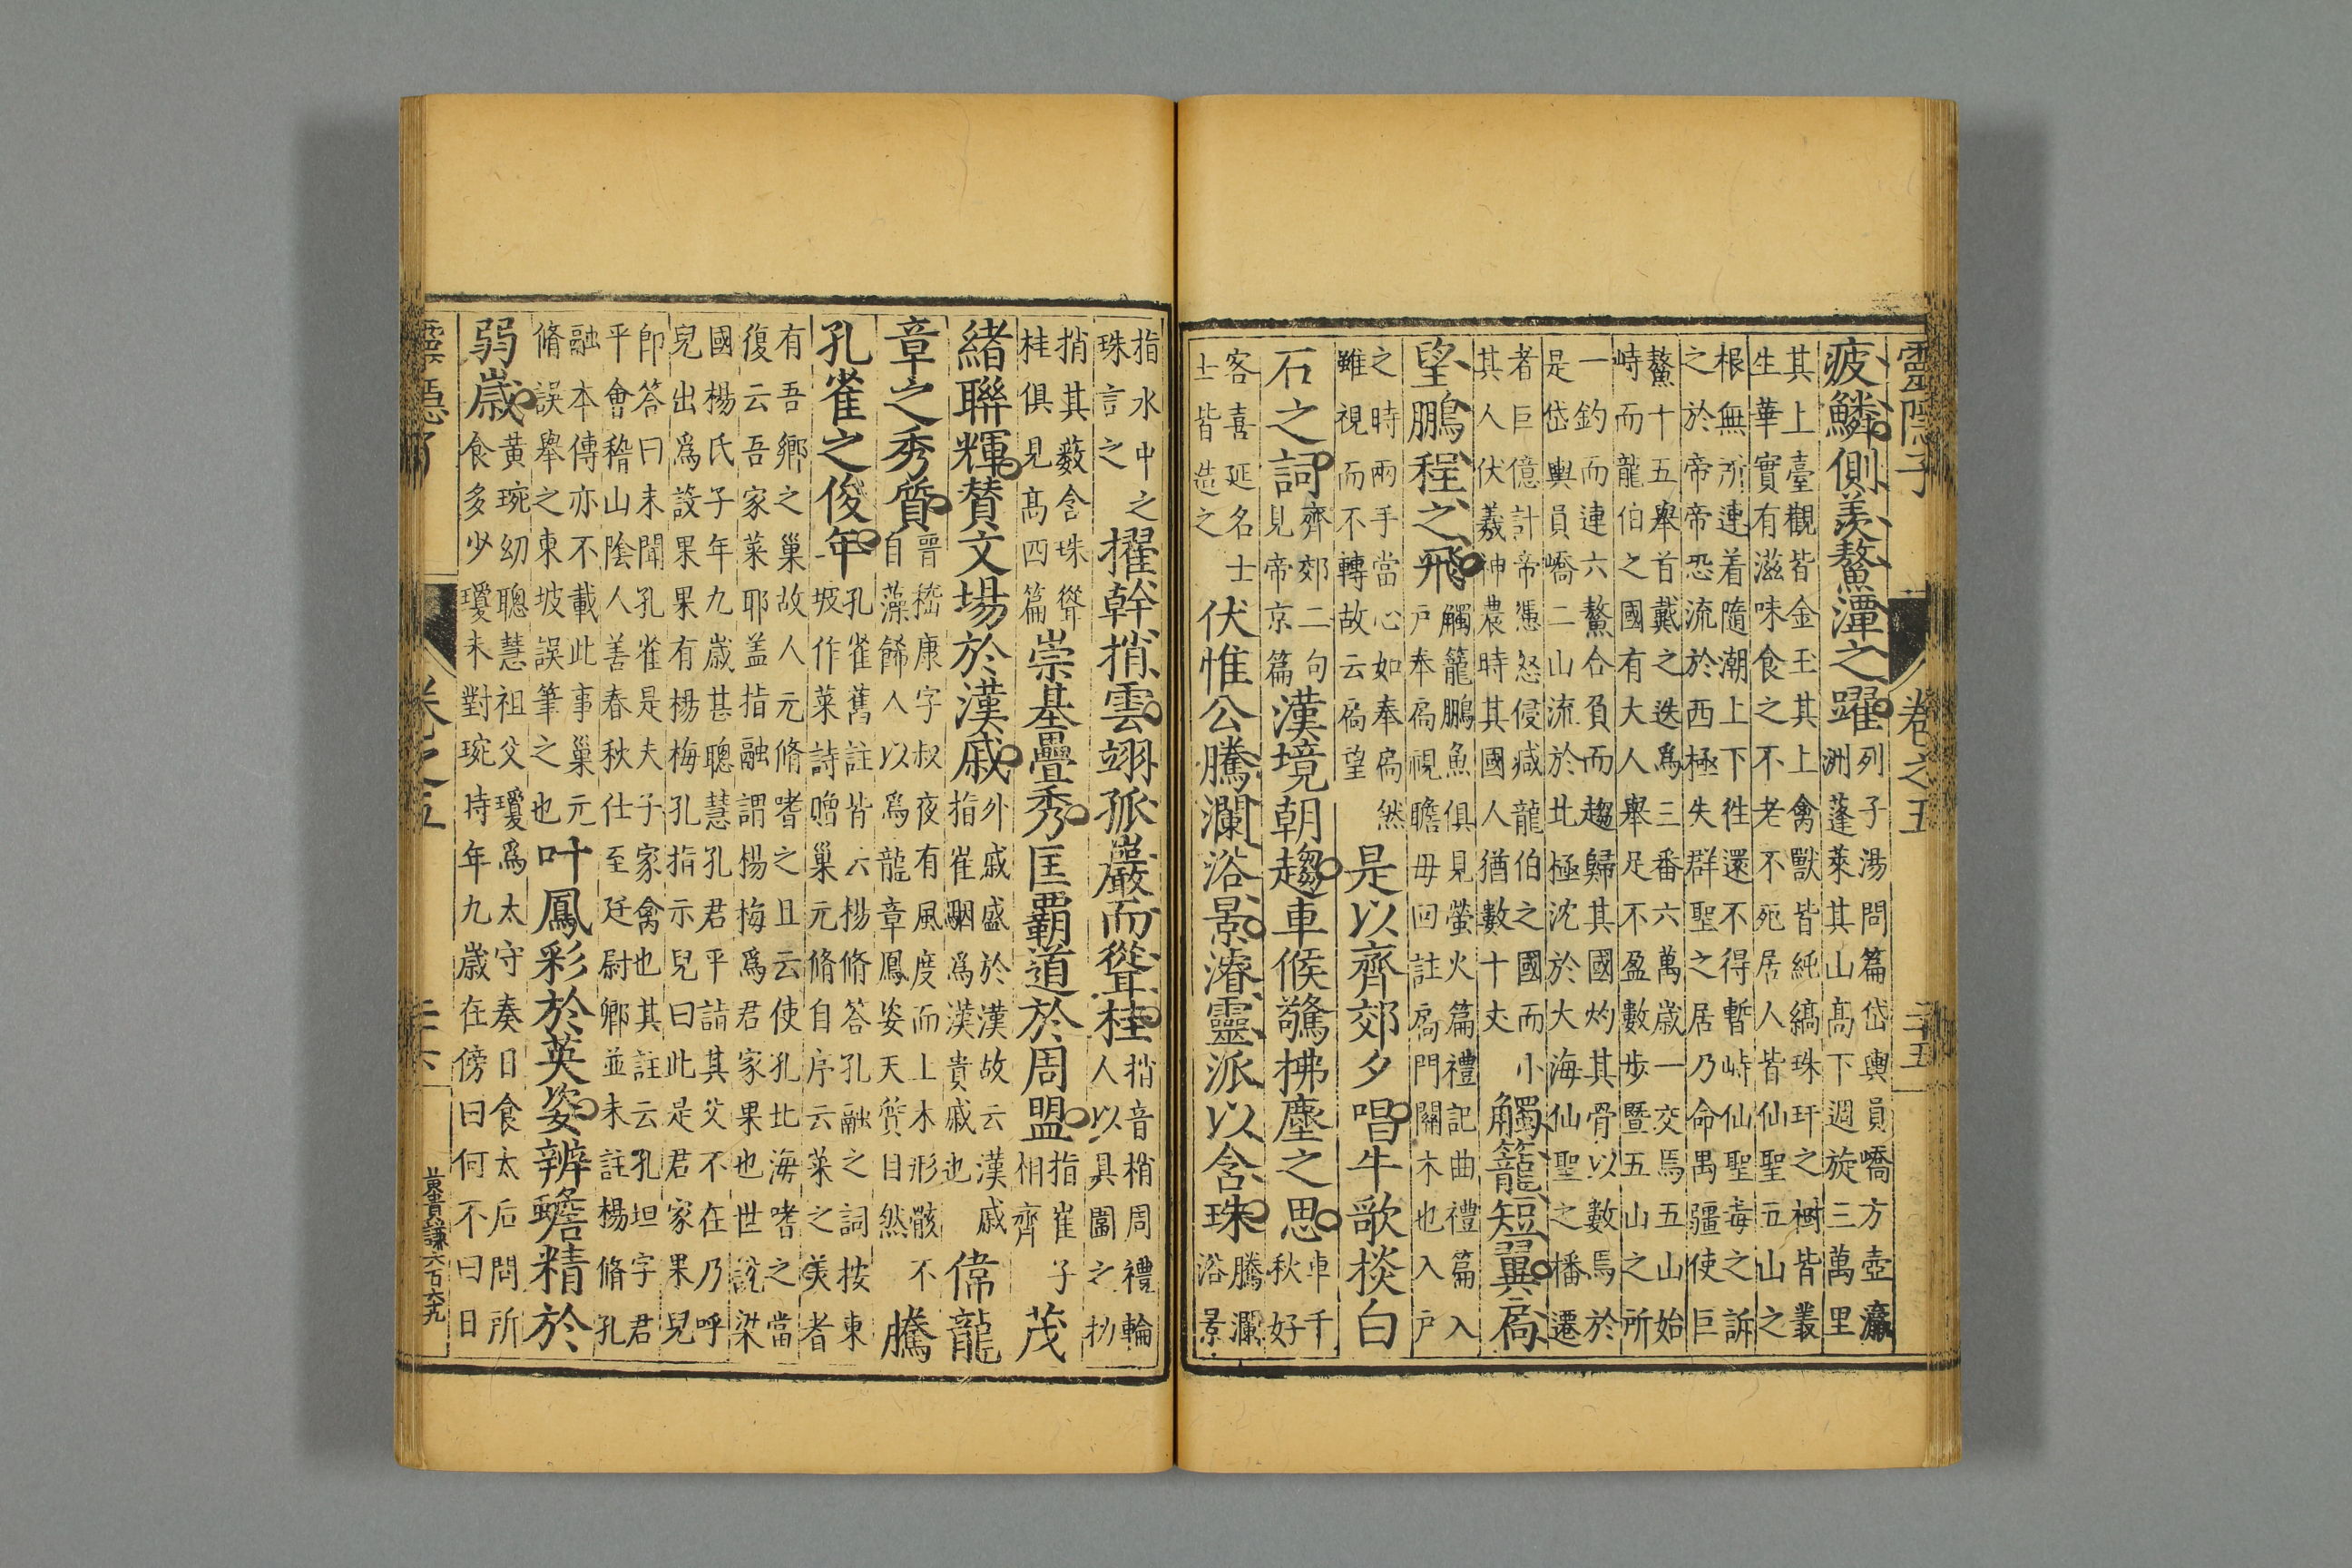 靈隱子　卷之五　二十五
疲鱗側羨鰲潭之躍
列子湯問篇岱輿員嶠方壺瀛
洲蓬萊其山高下週旋三萬里
其上臺觀皆金玉其上禽獸皆純縞珠玕之樹皆叢
生華實有滋味食之不老不死居人皆仙聖五山之
根無所連着隨潮上下往還不得暫峙仙聖毒之訴
之於帝帝恐流於西極失群聖之居乃命禺疆使巨
鰲十五舉首戴之迭爲三番六萬歲一交焉五山始
峙而龍伯之國有大人舉足不盈數步暨五山之所
一釣而連六鰲合負而趨歸其國灼其骨以數焉於
是岱輿員嶠二山流於北極沈於大海仙聖之播遷
者巨億計帝憑怒侵减龍伯之國而小
其人伏羲神農時其國人猶數十丈
觸籠短翼扃
望鵬程之飛
觸籠鵬魚俱見螢火篇禮記曲禮篇入
戶奉扃視瞻毋回註扃門關木也入戶
之時兩手當心如奉扃然
雖視而不轉故云扃望
是以齊郊夕唱牛歌棪白
石之詞
齊郊二句
見帝京篇
漢境朝趨車候驚拂塵之思
車千
秋好
客喜延名士
士皆造之
伏惟公騰瀾浴景濬靈派以含珠
騰瀾
浴景
指水中之
珠言之
擢幹捎雲翊孤巖而聳桂
捎音梢周禮輪
人以具圍之扐
捎其藪含珠聳
桂俱見高四篇
崇基疊秀匡霸道於周盟
指崔子
相齊
茂
緒聯輝賛文場於漢戚
外戚盛於漢故云漢戚
指崔駰爲漢貴戚也
偉龍
章之秀質
晉嵇康字叔夜有風度而上木形骸不
自藻飾人以爲龍章鳳姿天質自然
騰
孔雀之俊年
孔雀舊註皆六楊脩答孔融之詞按東
坡作菜詩贈巢元脩自序云菜之美者
有吾鄉之巢故人元脩嗜之且云使孔北海嗜之當
復云吾家菜耶盖指融謂楊梅爲君家果也世說梁
國楊氏子年九歲甚聰慧孔君平詣其父不在乃呼
兒出爲設果果有楊梅孔指示兒曰此是君家果兒
即答曰未聞孔雀是夫子家禽也其註云孔坦字君
平會稽山陰人善春秋仕至廷尉卿並未註楊脩孔
融本傳亦不載此事巢元
脩誤舉之東坡誤筆之也
叶鳳彩於英姿辨蟾精於
弱歲
黃琬幼聰慧祖父瓊爲太守奏日食太后問所
食多少瓊未對琬時年九歲在傍曰何不曰日
靈隱子　卷之五　二十六　貴謙六百六九